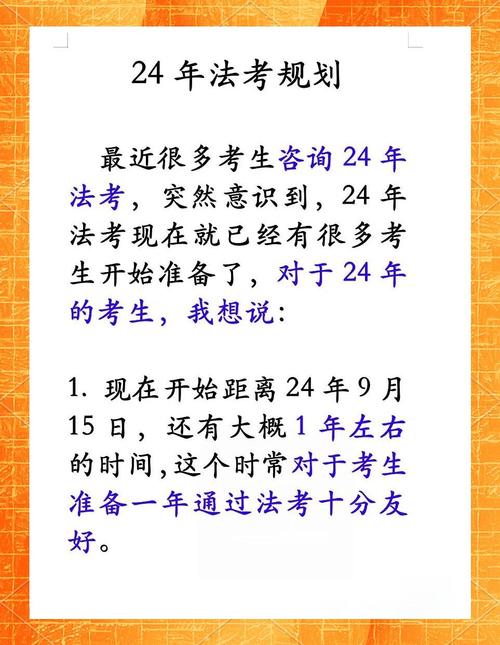 24 年法考规划
最近很多考生咨询 24 年
法考，突然意识到，24 年
法考现在就已经有很多考
生开始准备了，对于 24 年
的考生，我想说：
1. 现在开始距离 24 年 9 月
15 日，还有大概 1 年左右
的时间,这个时常对于考生
准备一年通过法考十分友
好。